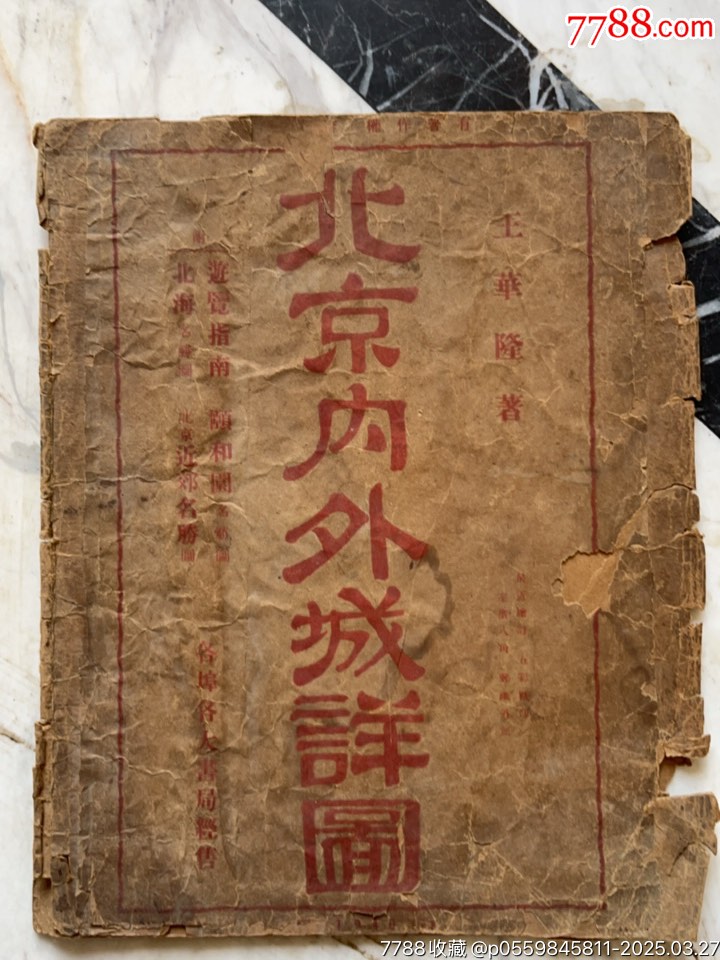 7788.com
有著作權
王華隆著
北京內外城詳圖
附
遊覽指南 頤和園
北海 北京近郊名勝圖
各埠各大書局經售
7788收藏 @p0559845811-2025.03.27